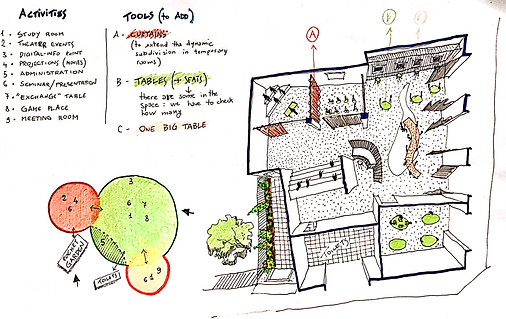 ACTIVITIES
1 - STUDY ROOM
2 - THEATER EVENTS
3 - DIGITAL-INFO POINT
4 - PROJECTIONS (MOVIES)
5 - ADMINISTRATION
6 - SEMINAR/PRESENTATION
7 - "EXCHANGE" TABLE
8 - GAME PLACE
9 - MEETING ROOM
TOOLS (to ADD)
A - CURTAINS
(to extend the dynamic
subdivision in temporary
rooms)
B - TABLES (+ SEATS)
there are some in the
space: we have to check
how many
C - ONE BIG TABLE
A
B
C
3
2 4
6
6 7
1 8
5
GARDEN
TOILETS
9
6 1
TOILETS